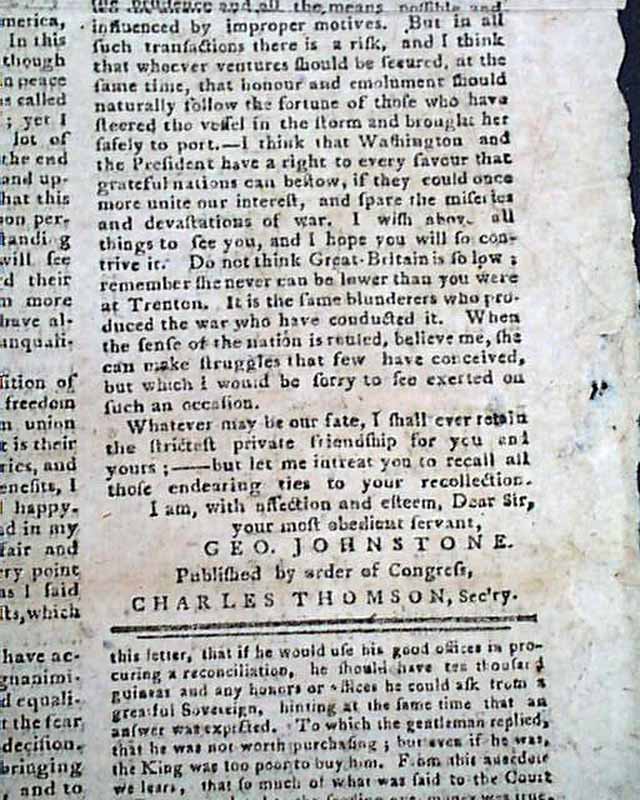 merica,
In this
though
n peace
s called
; yet I
lot of
the end
and up-
hat this
on per-
tandi g
will see
d their
n more
have al-
nquali-
ition of
freedom
n union
t is their
ries, and
enefits, I
happy.
d in my
fair and
ry point
as I said
sts, which
have ac-
gnanimi-
d equali-
t the fear
decision.
bringing
, and to
and all the means possible and
influenced by improper motives. But in all
ſuch tranſactions there is a riſk, and I think
that whoever ventures ſhould be ſecured, at the
ſame time, that honour and emolument ſhould
naturally follow the fortune of thoſe who have
ſteered the veſſel in the ſtorm and brought her
ſafely to port.—I think that Waſhington and
the Preſident have a right to every favour that
grateful nations can beſtow, if they could once
more unite our intereſt, and ſpare the miſeries
and devaſtations of war. I wiſh above all
things to ſee you, and I hope you will ſo con-
trive it. Do not think Great-Britain is ſo low ;
remember ſhe never can be lower than you were
at Trenton. It is the ſame blunderers who pro-
duced the war who have conducted it. When
the ſenſe of the nation is rouſed, believe me, ſhe
can make ſtruggles that few have conceived,
but which I would be ſorry to ſee exerted on
ſuch an occaſion.
Whatever may be our fate, I ſhall ever retain
the ſtricteſt private friendſhip for you and
yours ;——but let me intreat you to recall all
thoſe endearing ties to your recollection.
I am, with affection and eſteem, Dear Sir,
your moſt obedient ſervant,
GEO. JOHNSTONE.
Publiſhed by order of Congreſs,
CHARLES THOMSON, Sec'ry.
this letter, that if he would uſe his good offices in pro-
curing a reconciliation, he ſhould have ten thouſand
guineas and any honors or offices he could aſk from a
grateful Sovereign, hinting at the ſame time that an
anſwer was expected. To which the gentleman replied,
that he was not worth purchaſing ; but even if he was,
the King was too poor to buy him. From this anecdote
we learn, that ſo much of what was ſaid to the Court